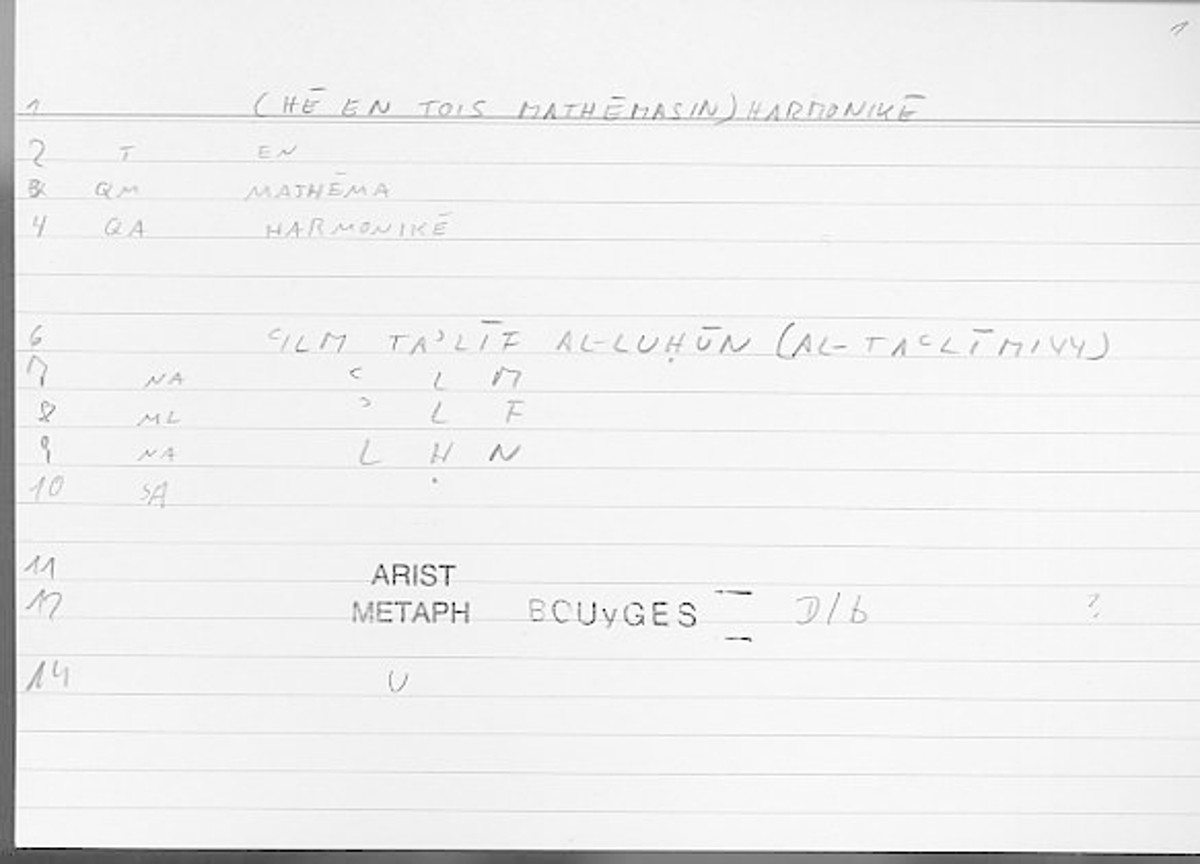 1
1 (HĒ EN TOIS MATHĒMASIN) HARMONIKĒ
2 T EN
3 QM MATHĒMA
4 QA HARMONIKĒ
6 ʿILM TAʾLĪF AL-LUḤŪN (AL-TAʿLĪMIYY)
7 NA ʿ L M
8 ML ʾ L F
9 NA L Ḥ N
10 SA
11 ARIST
12 METAPH BOUyGES D/b ?
14 U